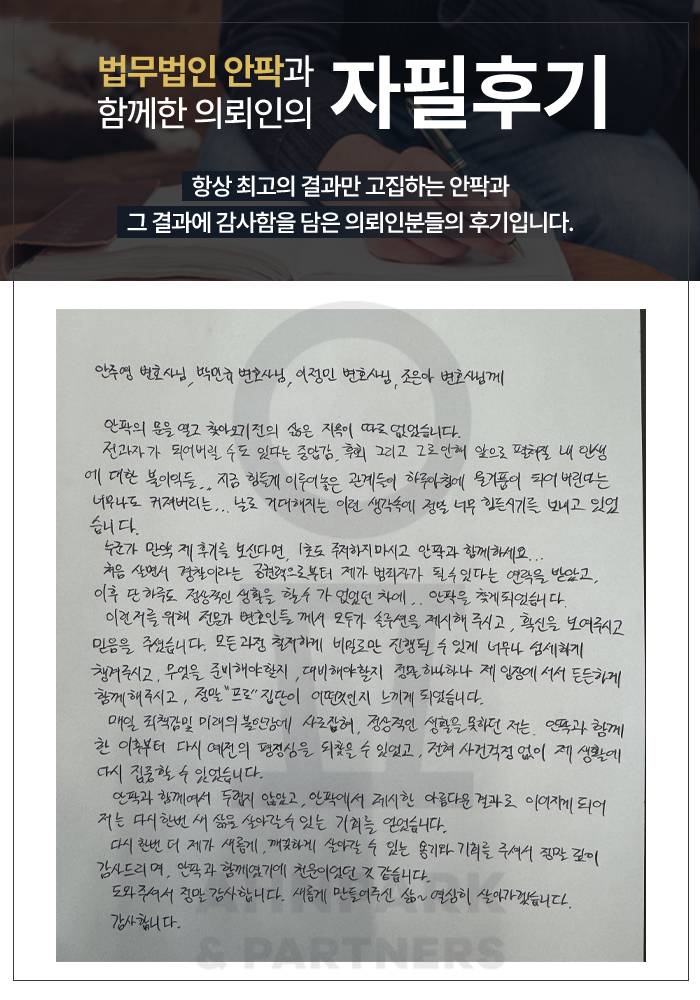 법무법인 안팍과
함께한 의뢰인의
자필후기
항상 최고의 결과만 고집하는 안팍과
그 결과에 감사함을 담은 의뢰인분들의 후기입니다.
안주영 변호사님, 박민규 변호사님, 이정민 변호사님, 조은아 변호사님께
안팍의 문을 열고 찾아오기 전의 삶은 지옥이 따로 없었습니다.
전과자가 되어버릴 수도 있다는 중압감, 후회 그리고 그로 인해 앞으로 펼쳐질 내 인생
에 대한 불이익들.. 지금 힘들게 이루어놓은 관계들이 하루아침에 물거품이 되어버린다는
너무나도 커져버리는... 날로 거대해지는 이런 생각속에 정말 너무 힘든시기를 보내고 있었
습니다.
누군가 만약 제 후기를 보신다면, 1초도 주저하지마시고 안팍과 함께하세요...
처음 살면서 경찰이라는 공권력으로부터 제가 범죄자가 될 수 있다는 연락을 받았고,
이후 단 하루도 정상적인 생활을 할 수가 없었던 차에.. 안팍을 찾게되었습니다.
이런 저를 위해 전문가 변호인들께서 모두가 솔루션을 제시해 주시고, 확신을 보여주시고
믿음을 주셨습니다. 모든과정 철저하게 비밀로만 진행될 수 있게 너무나 섬세하게
챙겨주시고, 무엇을 준비해야할지, 대비해야할지 정말 하나하나 제 입장에 서서 든든하게
함께 해주시고, 정말 "프로"집단이 어떤것인지 느끼게 되었습니다.
매일 죄책감및 미래의 불안감에 사로잡혀, 정상적인 생활을 못하던 저는, 안팍과 함께
한 이후부터 다시 예전의 평정심을 되찾을 수 있었고, 전혀 사건걱정 없이 제 생활에
다시 집중할 수 있었습니다.
안팍과 함께여서 두렵지 않았고, 안팍에서 제시한 아름다운 결과로 이어지게 되어
저는 다시한번 새 삶을 살아갈 수 있는 기회를 얻었습니다.
다시 한번 더 제가 새롭게, 깨끗하게 살아갈 수 있는 용기와 기회를 주셔서 정말 깊이
감사드리며, 안팍과 함께였기에 천운이었던 것 같습니다.
도와주셔서 정말 감사합니다. 새롭게 만들어주신 삶~ 열심히 살아가겠습니다.
감사합니다.
AHNPARK
& PARTNERS